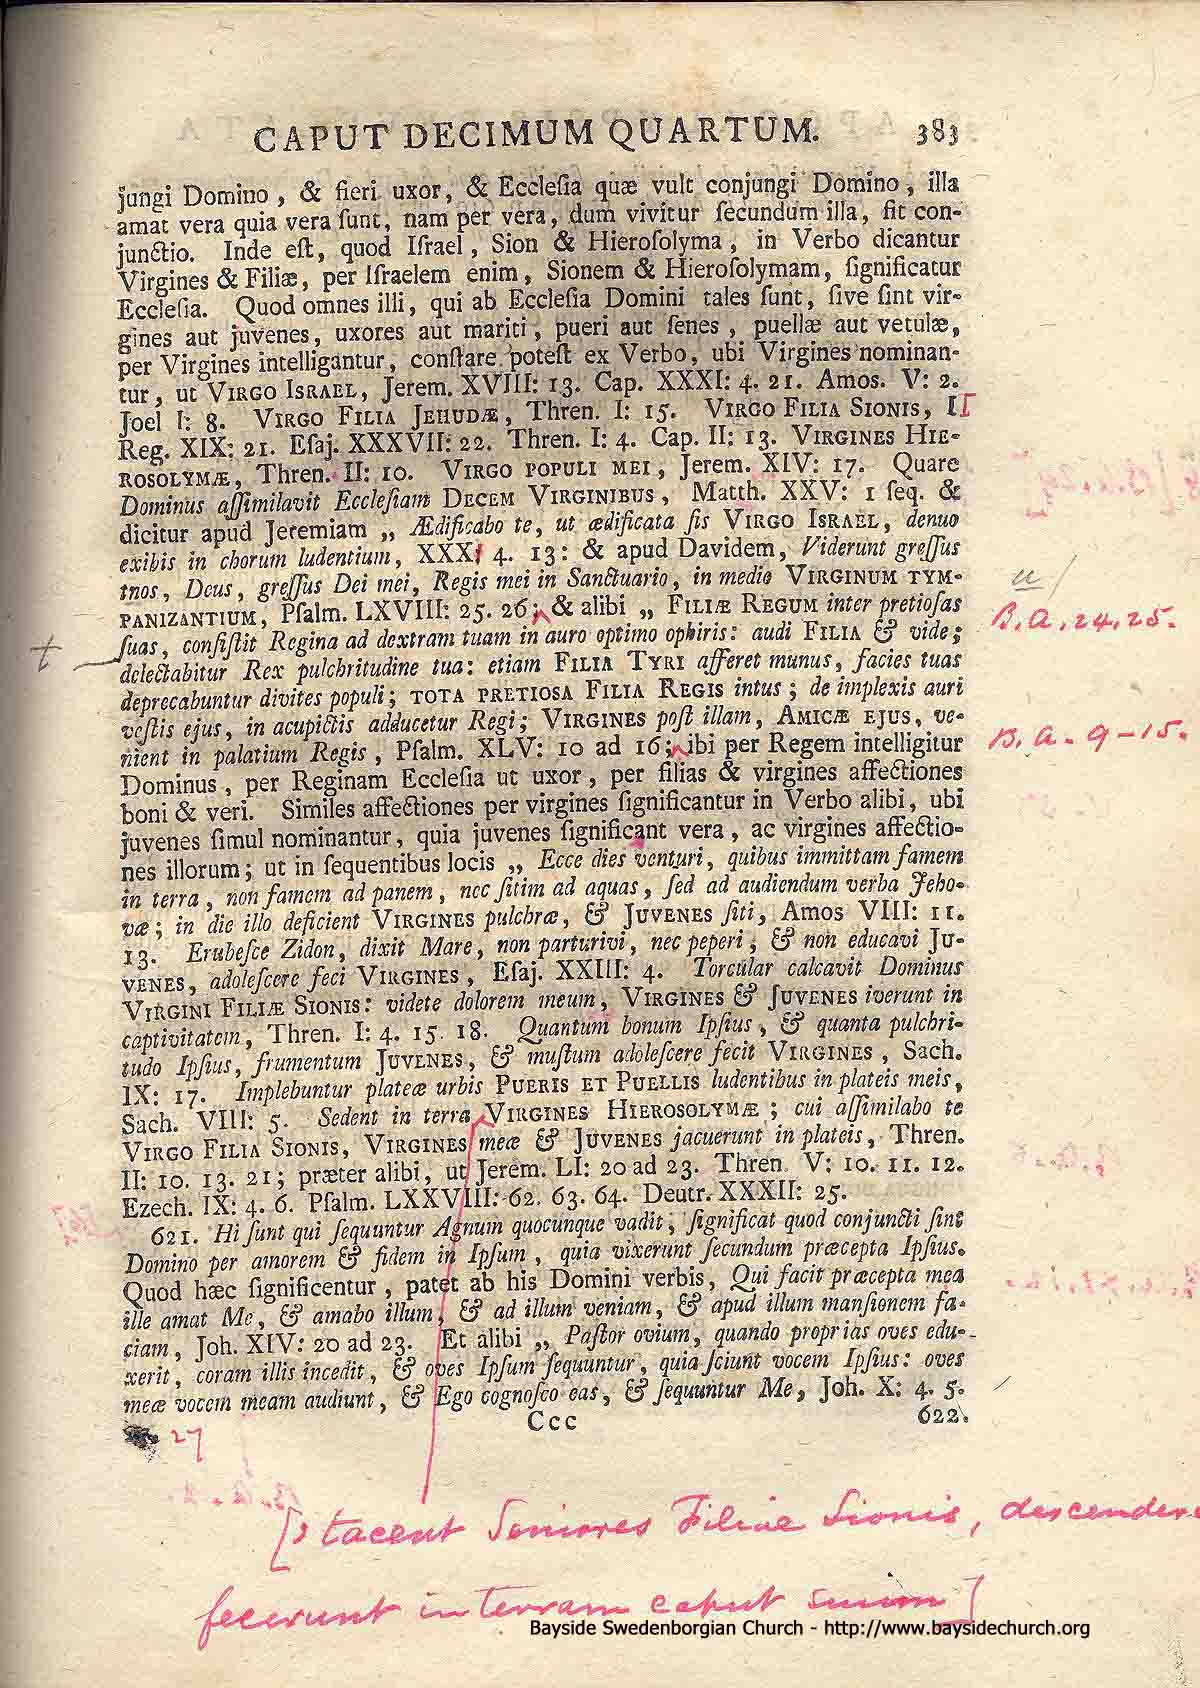 CAPUT DECIMUM QUARTUM. 383
jungi Domino, & fieri uxor, & Ecclesia quæ vult conjungi Domino, illa
amat vera quia vera ſunt, nam per vera, dum vivitur ſecundum illa, fit con-
junctio. Inde eſt, quod Iſrael, Sion & Hieroſolyma, in Verbo dicantur
Virgines & Filiæ, per Iſraelem enim, Sionem & Hieroſolymam, ſignificatur
Eccleſia. Quod omnes illi, qui ab Eccleſia Domini tales ſunt, ſive ſint vir-
gines aut juvenes, uxores aut mariti, pueri aut ſenes, puellæ aut vetulæ,
per Virgines intelligantur, conſtare poteſt ex Verbo, ubi Virgines nominan-
tur, ut VIRGO ISRAEL, Jerem. XVIII: 13. Cap. XXXI: 4. 21. Amos. V: 2.
Joel I: 8. VIRGO FILIA JEHUDÆ, Thren. I: 15. VIRGO FILIA SIONIS, I[
Reg. XIX: 21. Eſaj. XXXVII: 22. Thren. I: 4. Cap. II: 13. VIRGINES HIE-
ROSOLYMÆ, Thren. II: 10. VIRGO POPULI MEI, Jerem. XIV: 17. Quare
Dominus aſſimilavit Eccleſiam DECEM VIRGINIBUS, Matth. XXV: 1 ſeq. &
dicitur apud Jeremiam „ Ædificabo te, ut ædificata ſis VIRGO ISRAEL, denuo
exibis in chorum ludentium, XXXI 4. 13: & apud Davidem, Viderunt greſſus
tuos, Deus, greſſus Dei mei, Regis mei in Sanctuario, in medio VIRGINUM TYM-
u/
PANIZANTIUM, Pſalm. LXVIII: 25. 26; & alibi „ FILIÆ REGUM inter pretioſas
B.A. 24, 25.
ſuas, conſiſtit Regina ad dextram tuam in auro optimo ophiris: audi FILIA & vide;
t
delectabitur Rex pulchritudine tua: etiam FILIA TYRI afferet munus, facies tuas
deprecabuntur divites populi; TOTA PRETIOSA FILIA REGIS intus; de implexis auri
veſtis ejus, in acupictis adducetur Regi; VIRGINES poſt illam, AMICÆ EJUS, ve-
nient in palatium Regis, Pſalm. XLV: 10 ad 16; ibi per Regem intelligitur
B.A. 9-15.
Dominus, per Reginam Eccleſia ut uxor, per filias & virgines affectiones
boni & veri. Similes affectiones per virgines ſignificantur in Verbo alibi, ubi
juvenes ſimul nominantur, quia juvenes ſignificant vera, ac virgines affectio-
nes illorum; ut in ſequentibus locis „ Ecce dies venturi, quibus immittam famem
in terra, non famem ad panem, nec ſitim ad aquas, ſed ad audiendum verba Jeho-
væ; in die illo deficient VIRGINES pulchræ, & JUVENES ſiti, Amos VIII: 11.
13. Erubeſce Zidon, dixit Mare, non parturivi, nec peperi, & non educavi JU-
VENES, adoleſcere feci VIRGINES, Eſaj. XXIII: 4. Torcular calcavit Dominus
VIRGINI FILIÆ SIONIS: videte dolorem meum, VIRGINES & JUVENES iverunt in
captivitatem, Thren. I: 4. 15. 18. Quantum bonum Ipſius, & quanta pulchri-
tudo Ipſius, frumentum JUVENES, & muſtum adoleſcere fecit VIRGINES, Sach.
IX: 17. Implebuntur plateæ urbis PUERIS ET PUELLIS ludentibus in plateis meis,
Sach. VIII: 5. Sedent in terra VIRGINES HIEROSOLYMÆ; cui aſſimilabo te
VIRGO FILIA SIONIS, VIRGINES meæ & JUVENES jacuerunt in plateis, Thren.
II: 10. 13. 21; præter alibi, ut Jerem. LI: 20 ad 23. Thren. V: 10. 11. 12.
Ezech. IX: 4. 6. Pſalm. LXXVIII: 62. 63. 64. Deutr. XXXII: 25.
621. Hi ſunt qui ſequuntur Agnum quocunque vadit, ſignificat quod conjuncti ſint
Domino per amorem & fidem in Ipſum, quia vixerunt ſecundum præcepta Ipſius.
Quod hæc ſignificentur, patet ab his Domini verbis, Qui facit præcepta mea
ille amat Me, & amabo illum, & ad illum veniam, & apud illum manſionem fa-
ciam, Joh. XIV: 20 ad 23. Et alibi „ Paſtor ovium, quando proprias oves edu-
xerit, coram illis incedit, & oves Ipſum ſequuntur, quia ſciunt vocem Ipſius: oves
meæ vocem meam audiunt, & Ego cognoſco eas, & ſequuntur Me, Joh. X: 4. 5.
Ccc 622.
27
[, tacent Seniores Filiae Sionis, descendere
fecerunt in terram caput suum]
Bayside Swedenborgian Church - http://www.baysidechurch.org